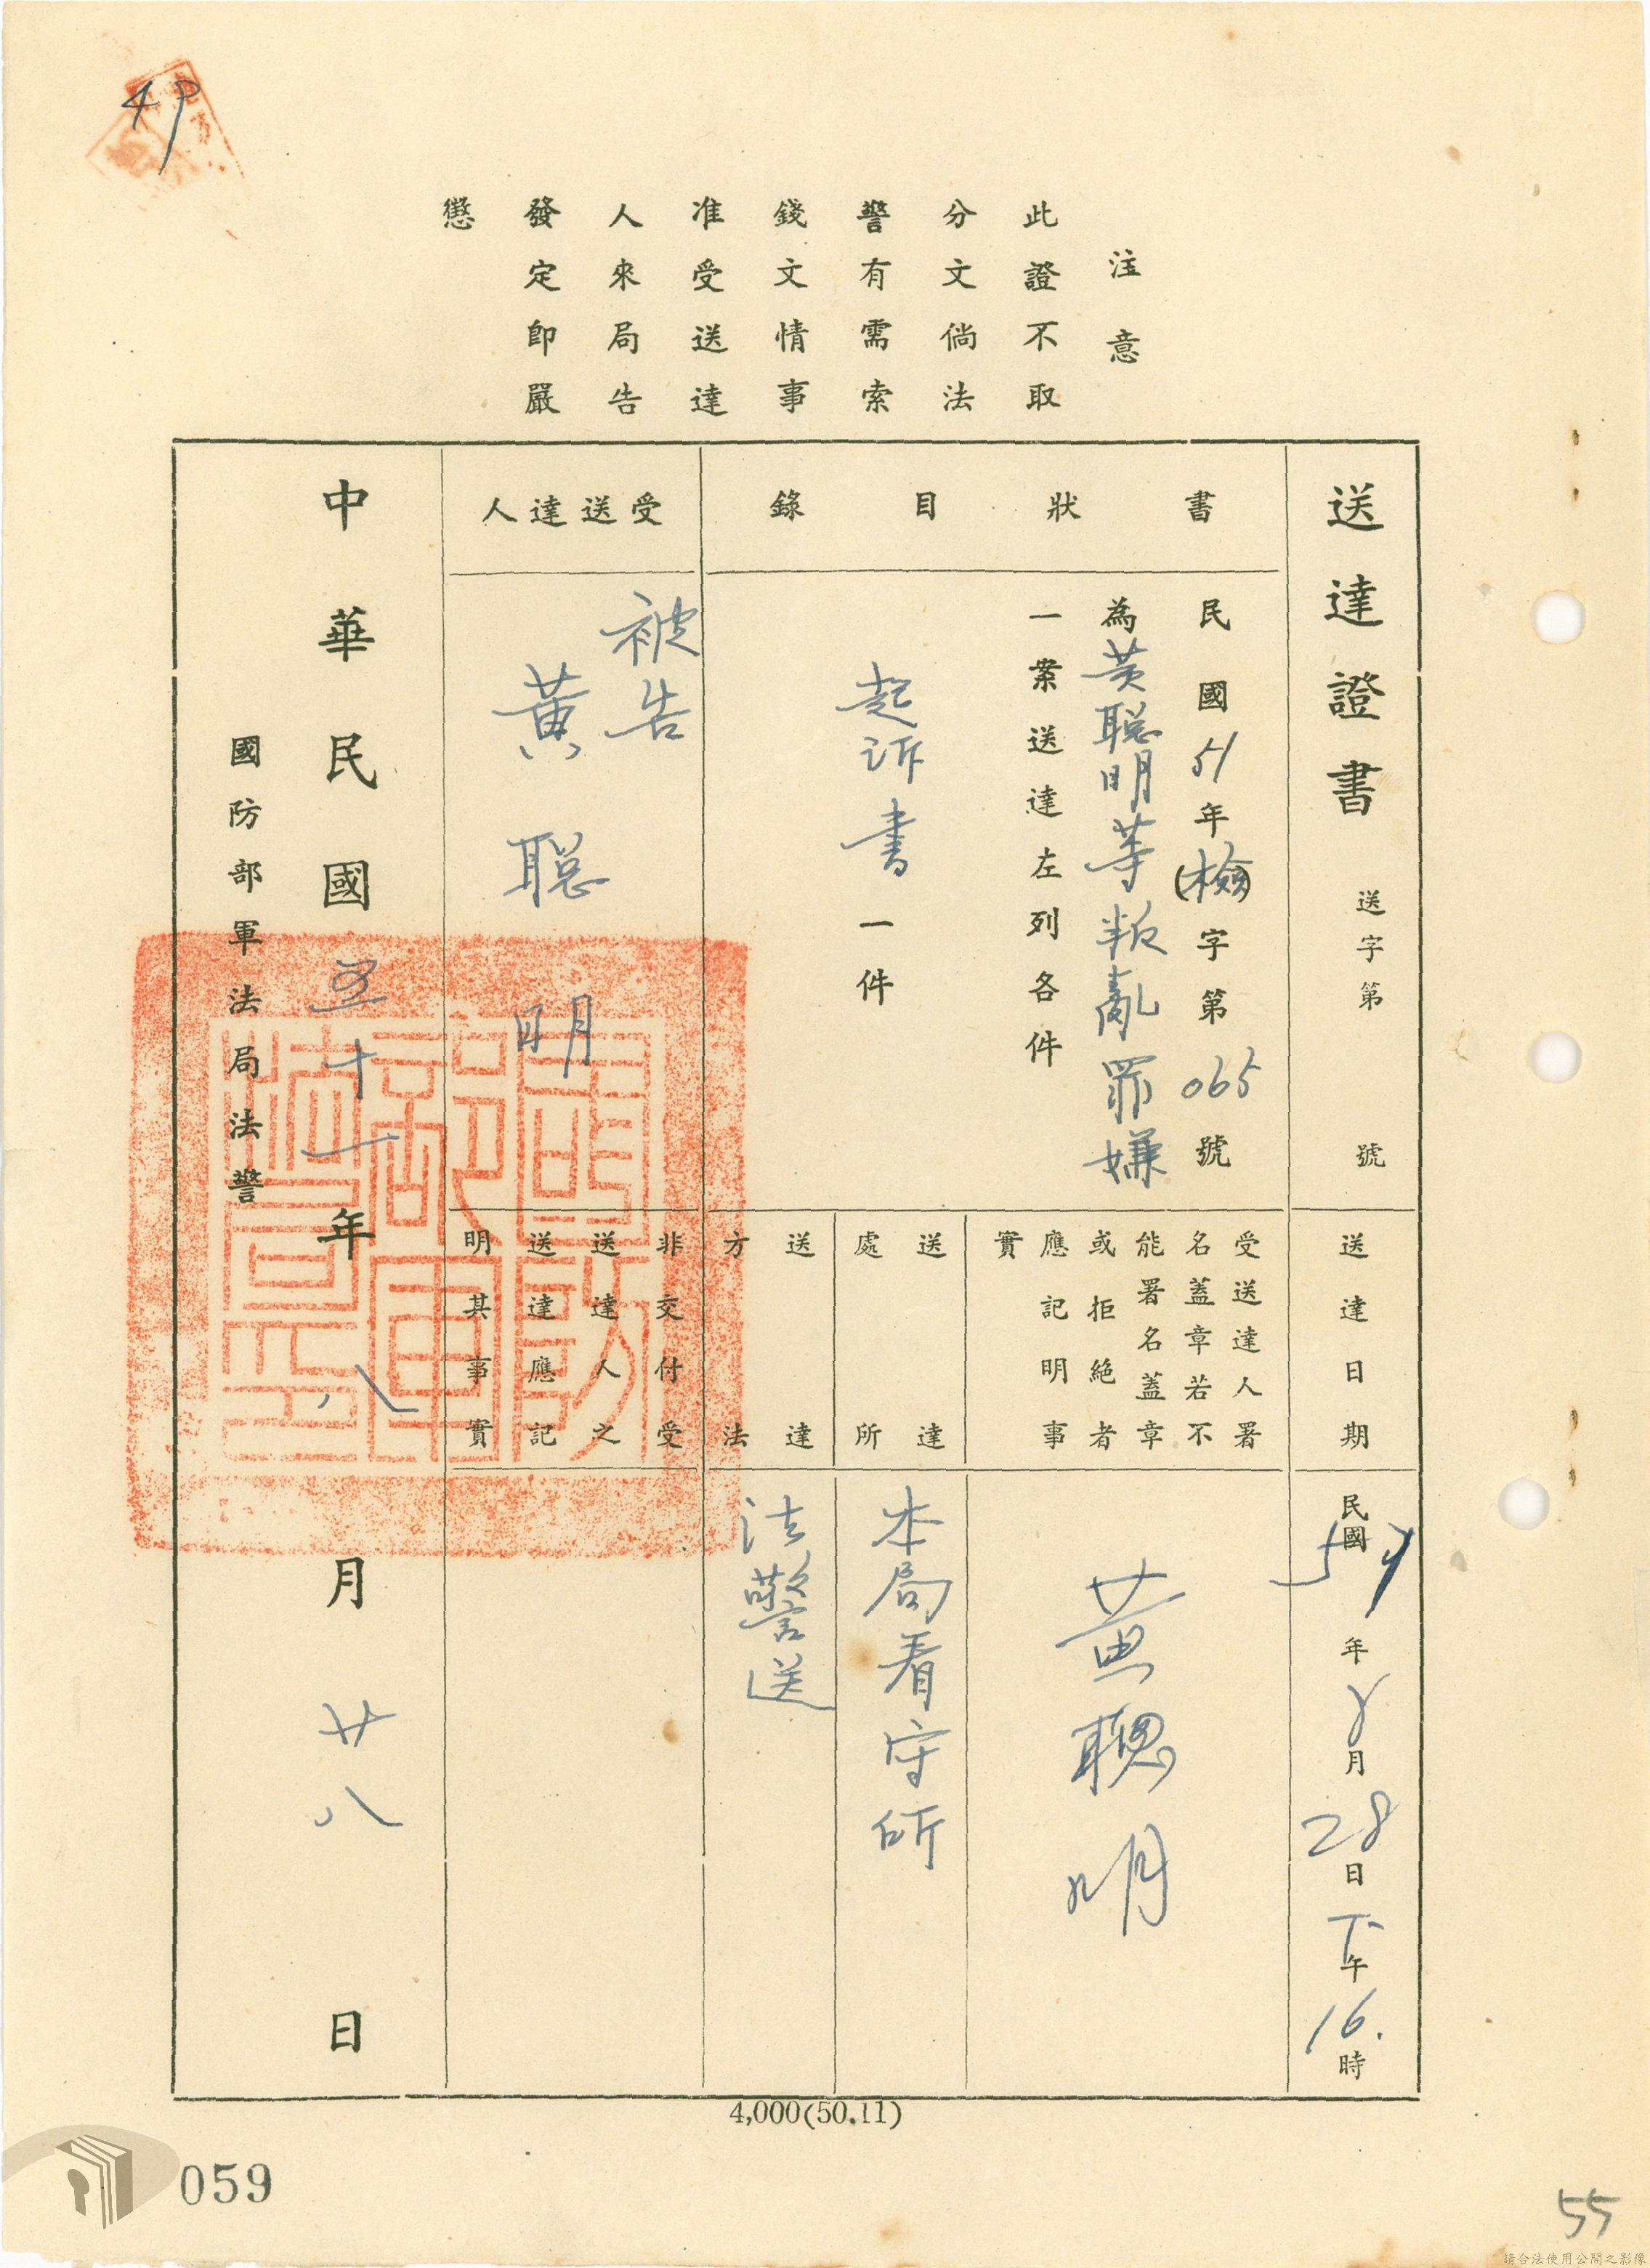 49
注意
此證不取
分文倘法
警有需索
錢文情事
准受送達
人來局告
發定即嚴
懲
送達證書 送字第 號
書狀目錄
民國51年(檢)字第065號
為黃聰明等叛亂罪嫌
一案送達左列各件
起訴書一件
受送達人
被告
黃聰明
送達日期
民國51年8月28日下午16.時
受送達人署
名蓋章若不
能署名蓋章
或拒絕者
應記明事
實
黃聰明
送達
處所
本局看守所
送達
方法
法警送
非交付受
送達人之
送達應記
明其事實
中華民國五十一年八月廿八日
國防部軍法局法警
4,000(50.11)
059
55
請合法使用公開之影像